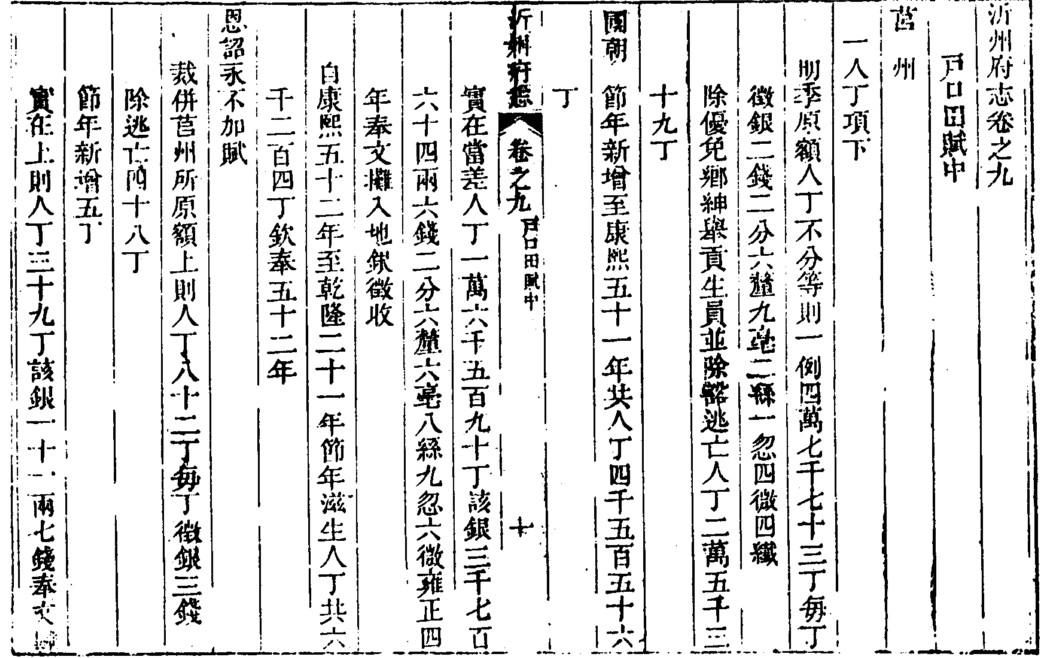 沂州府志卷之九
戸口田賦中
莒州
一人丁項下
明季原額人丁不分等則一例四萬七千七十三丁每丁
徵銀二錢二分六釐九毫二絲一忽四微四纖
除優免鄉紳舉貢生員並除豁逃亡人丁二萬五千三
十九丁
國朝 節年新增至康熙五十一年共人丁四千五百五十六
丁
沂州府志 卷之九 戸口田賦中 十
實在當差人丁一萬六千五百九十丁該銀三千七百
六十四兩六錢二分六釐六毫八絲九忽六微雍正四
年奉文攤入地銀徵收
自康熙五十二年至乾隆二十一年節年滋生人丁共六
千二百四丁欽奉五十二年
恩詔永不加賦
裁併莒州所原額上則人丁八十二丁每丁徵銀三錢
除逃亡四十八丁
節年新增五丁
實在上則人丁三十九丁該銀一十一兩七錢奉文